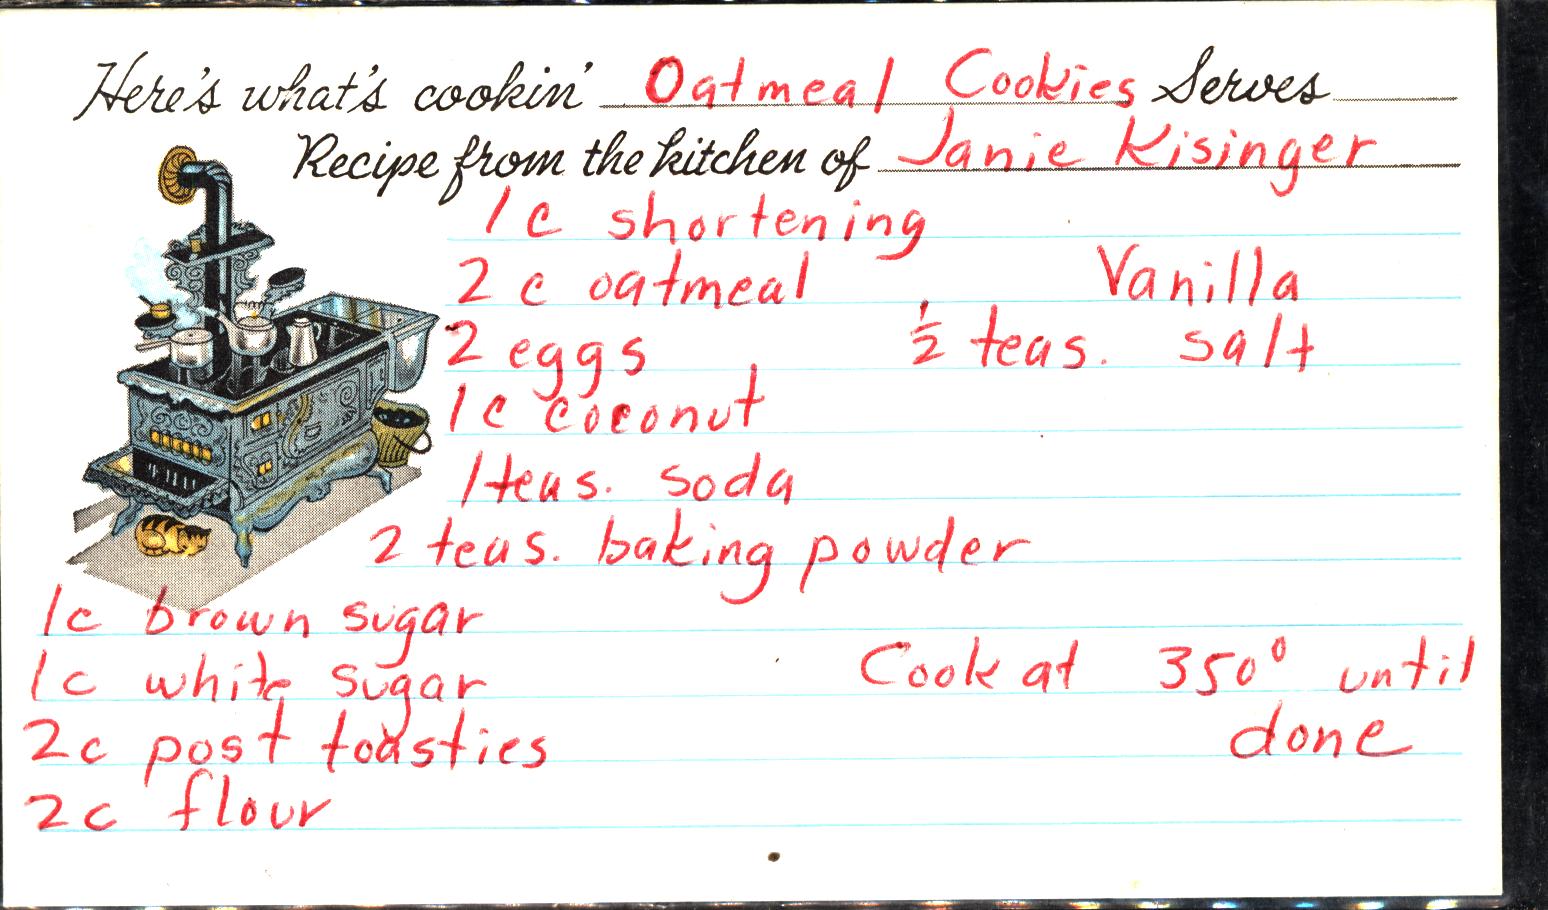 Here's what's cookin' Oatmeal Cookies Serves
Recipe from the kitchen of Janie Kisinger
1c shortening
2c oatmeal Vanilla
2 eggs ½ teas. salt
1c coconut
1 teas. soda
2 teas. baking powder
1c brown sugar
1c white sugar Cook at 350° until
2c post toasties done
2c flour